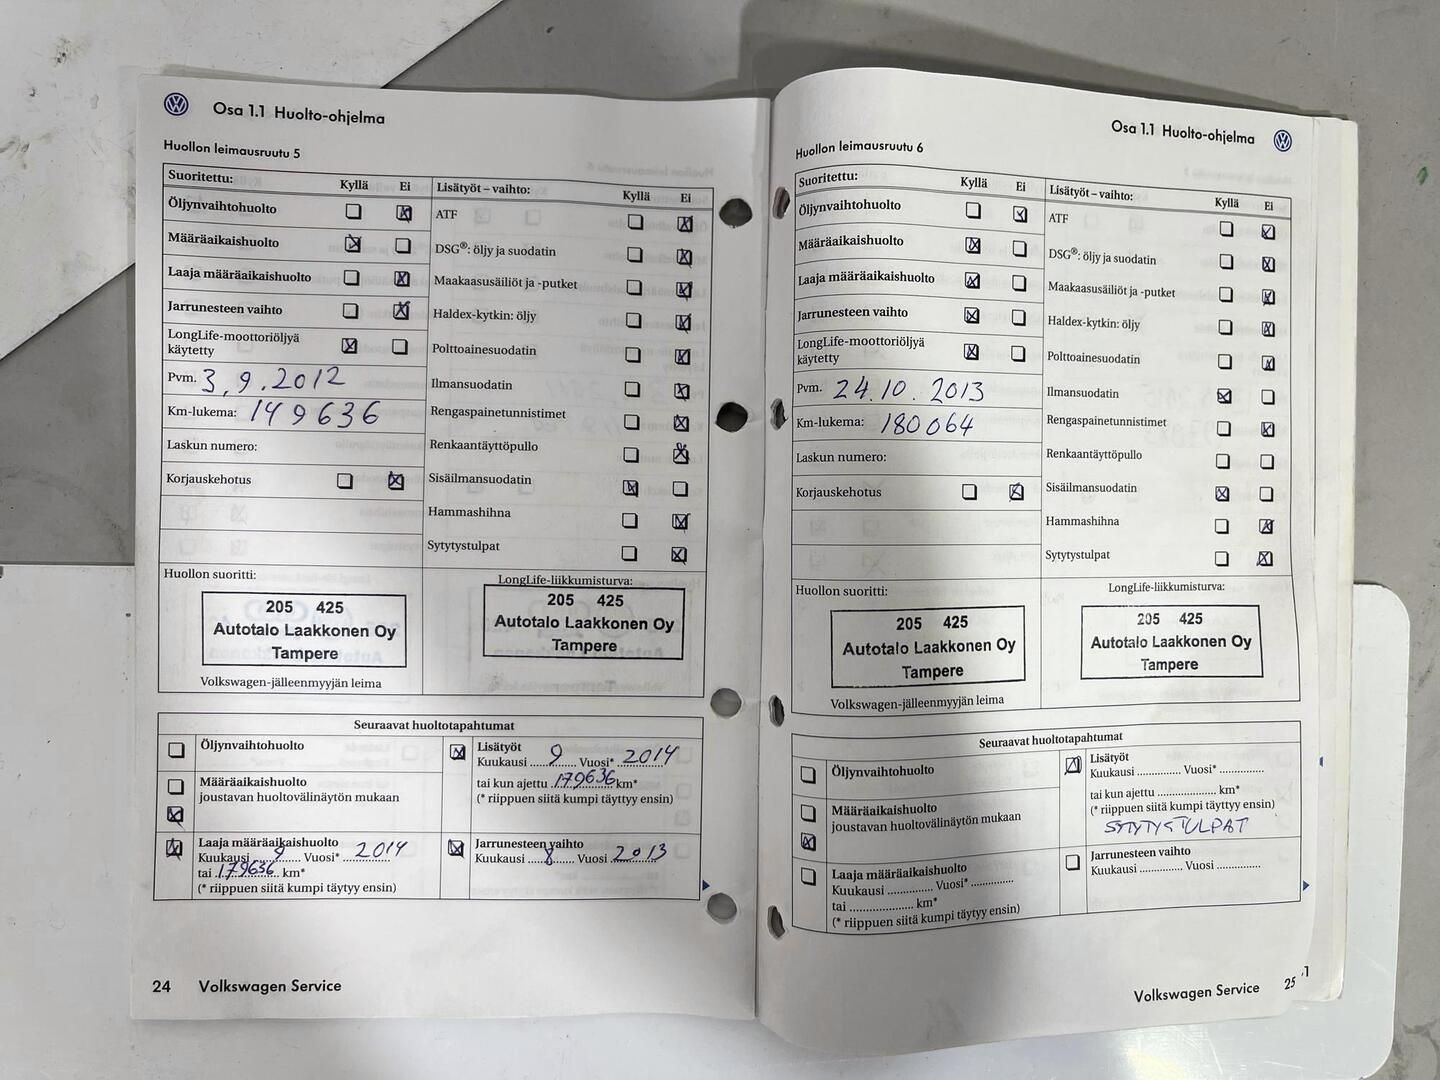 Osa 1.1 Huolto-ohjelma
Huollon leimausruutu 5
Suoritettu: Kyllä Ei
Öljynvaihtohuolto
Määräaikaishuolto
Laaja määräaikaishuolto
Jarrunesteen vaihto
LongLife-moottoriöljyä
käytetty
Pvm. 3.9.2012
Km-lukema: 149636
Laskun numero:
Korjauskehotus
Lisätyöt – vaihto: Kyllä Ei
ATF
DSG®: öljy ja suodatin
Maakaasusäiliöt ja -putket
Haldex-kytkin: öljy
Polttoainesuodatin
Ilmansuodatin
Rengaspainetunnistimet
Renkaantäyttöpullo
Sisäilmansuodatin
Hammashihna
Sytytystulpat
Huollon suoritti:
205 425
Autotalo Laakkonen Oy
Tampere
Volkswagen-jälleenmyyjän leima
LongLife-liikkumisturva:
205 425
Autotalo Laakkonen Oy
Tampere
Seuraavat huoltotapahtumat
Öljynvaihtohuolto
Määräaikaishuolto
joustavan huoltovälinäytön mukaan
Laaja määräaikaishuolto
Kuukausi 9 Vuosi* 2014
tai 179636 km*
(* riippuen siitä kumpi täytyy ensin)
Lisätyöt
Kuukausi 9 Vuosi* 2014
tai kun ajettu 179636 km*
(* riippuen siitä kumpi täytyy ensin)
Jarrunesteen vaihto
Kuukausi 8 Vuosi 2013
24 Volkswagen Service
Osa 1.1 Huolto-ohjelma
Huollon leimausruutu 6
Suoritettu: Kyllä Ei
Öljynvaihtohuolto
Määräaikaishuolto
Laaja määräaikaishuolto
Jarrunesteen vaihto
LongLife-moottoriöljyä
käytetty
Pvm. 24.10.2013
Km-lukema: 180064
Laskun numero:
Korjauskehotus
Lisätyöt – vaihto: Kyllä Ei
ATF
DSG®: öljy ja suodatin
Maakaasusäiliöt ja -putket
Haldex-kytkin: öljy
Polttoainesuodatin
Ilmansuodatin
Rengaspainetunnistimet
Renkaantäyttöpullo
Sisäilmansuodatin
Hammashihna
Sytytystulpat
Huollon suoritti:
205 425
Autotalo Laakkonen Oy
Tampere
Volkswagen-jälleenmyyjän leima
LongLife-liikkumisturva:
205 425
Autotalo Laakkonen Oy
Tampere
Seuraavat huoltotapahtumat
Öljynvaihtohuolto
Määräaikaishuolto
joustavan huoltovälinäytön mukaan
Laaja määräaikaishuolto
Kuukausi .............. Vuosi* ..............
tai .................... km*
(* riippuen siitä kumpi täytyy ensin)
Lisätyöt
Kuukausi .............. Vuosi* ..............
tai kun ajettu .................... km*
(* riippuen siitä kumpi täytyy ensin)
SYTYTYSTULPAT
Jarrunesteen vaihto
Kuukausi .............. Vuosi ..............
Volkswagen Service 25